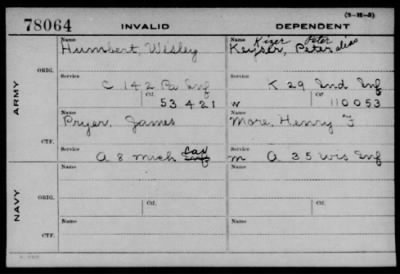 (3-16-8)
78064 INVALID DEPENDENT
Name Name Kizer Peter
Humbert, Wisley Keyser, Peter alias
ORIG.
Service Service
C 142 Pa Inf K 29 Ind Inf
Ctf. Ctf.
53421 W 110053
ARMY
Name Name
Pryer, James More, Henry F
CTF.
Service Service Cav
A 8 Mich Inf m A 35 Wis Inf
Name Name
ORIG.
Ctf. Ctf.
NAVY
Name Name
CTF.